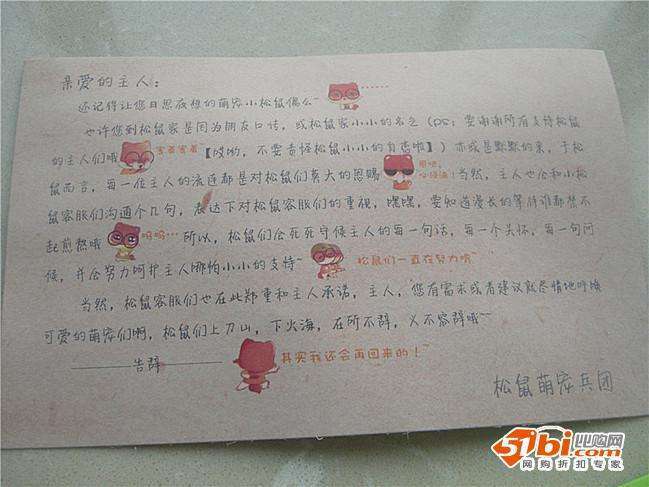 亲爱的主人：
还记得让您日思夜想的萌宠小松鼠偶么~ ......
也许您到松鼠家是因为朋友口述，或松鼠家小小的名气（PS：要谢谢所有支持松鼠
的主人们哦 害羞害羞【哎哟，不要责怪松鼠小小的自责啦】）亦或是默默的来，于松
鼠而言，每一位主人的流连都是对松鼠们莫大的恩赐 ！当然，主人也会和小松
鼠客服们沟通个几句，表达下对松鼠客服们的重视，嘿嘿，要知道漫长的等待谁都禁不
起煎熬哦 呜呜... 所以，松鼠们会死死守候主人的每一句话，每一个关怀，每一句问
候，并会努力呵护主人哪怕小小的支持~ 松鼠们一直在努力哦~
当然，松鼠客服们也在此郑重和主人承诺，主人，您有需求或者建议就尽情地呼唤
可爱的萌宠们啊，松鼠们上刀山，下火海，在所不辞，义不容辞哦~
——告辞—— 其实我还会再回来的！~
松鼠萌宠兵团
51bi.com 比购网
网购折扣专家